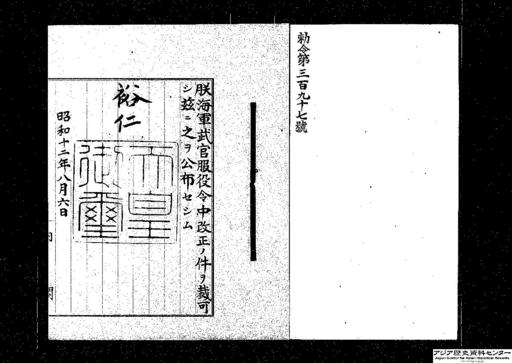 勅令第三百九十七號
朕海軍武官服役令中改正ノ件ヲ裁可
シ茲ニ之ヲ公布セシム
裕仁
天皇
御璽
昭和十二年八月六日
内
閣
アジア歴史資料センター
Japan Center for Asian Historical Records